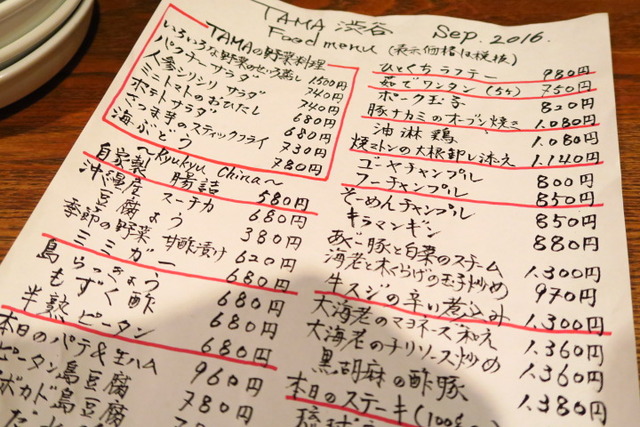 TAMA 渋谷 Sep. 2016.
Food menu (表示価格は税抜)
TAMAの野菜料理
いろいろな野菜のせいろ蒸し 1500円
パクチーサラダ 740円
人参シリシリ サラダ 740円
ミニトマトのおひたし 680円
ポテトサラダ 680円
さつま芋のスティックフライ 730円
海ぶどう 780円
〜Kyukyu China〜
自家製 腸詰 580円
沖縄産 スーチカ 680円
豆腐よう 380円
季節の野菜 甘酢漬け 620円
ミミガー 680円
島らっきょう 680円
もずく酢 680円
半熟ピータン 680円
本日のパテ&生ハム 960円
ピータン島豆腐 780円
ボカド島豆腐
ひとくちラフテー 980円
茹でワンタン (5ヶ) 750円
ポーク玉子 820円
豚ナカミのオーブン焼き 1.080円
油淋鶏 1.080円
焼マトンの大根卸し添え 1.140円
ゴーヤチャンプル 800円
フーチャンプル 850円
そーめんチャンプル 850円
キラマンギン 880円
あぐー豚と白菜のスチーム 1.300円
海老と木くらげの玉子炒め 970円
牛スジの辛い煮込み 1.300円
大海老のマヨネーズ和え 1.360円
大海老のチリソース炒め 1.360円
黒胡麻の酢豚 1.380円
本日のステーキ (100g
琉球